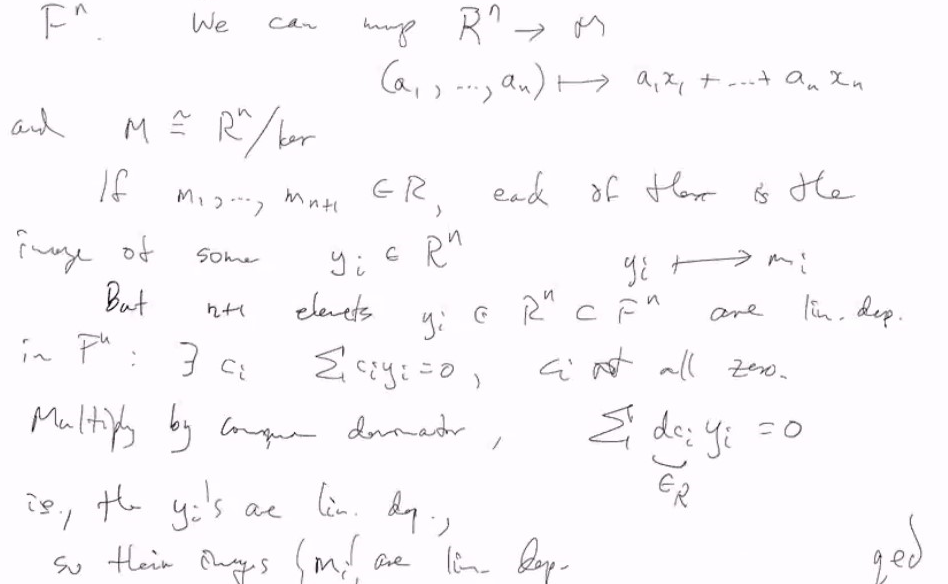 Fⁿ. We can map Rⁿ → M
(a₁, ..., aₙ) ↦ a₁x₁ + ... + aₙxₙ
and M ≅ Rⁿ/ker
If m₁, ..., mₙ₊₁ ∈ R, each of them is the
image of some yᵢ ∈ Rⁿ yᵢ ↦ mᵢ
But n+1 elements yᵢ ∈ Rⁿ ⊂ Fⁿ are lin. dep.
in Fⁿ : ∃ cᵢ Σ cᵢyᵢ = 0, cᵢ not all zero.
Multiply by common denominator, Σ dcᵢ yᵢ = 0
∈R
i.e., the yᵢ's are lin. dep.,
so their images {mᵢ} are lin. dep. qed